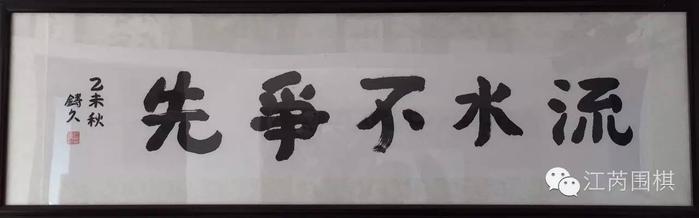 流水不爭先
乙未秋
鑄久
江芮围棋